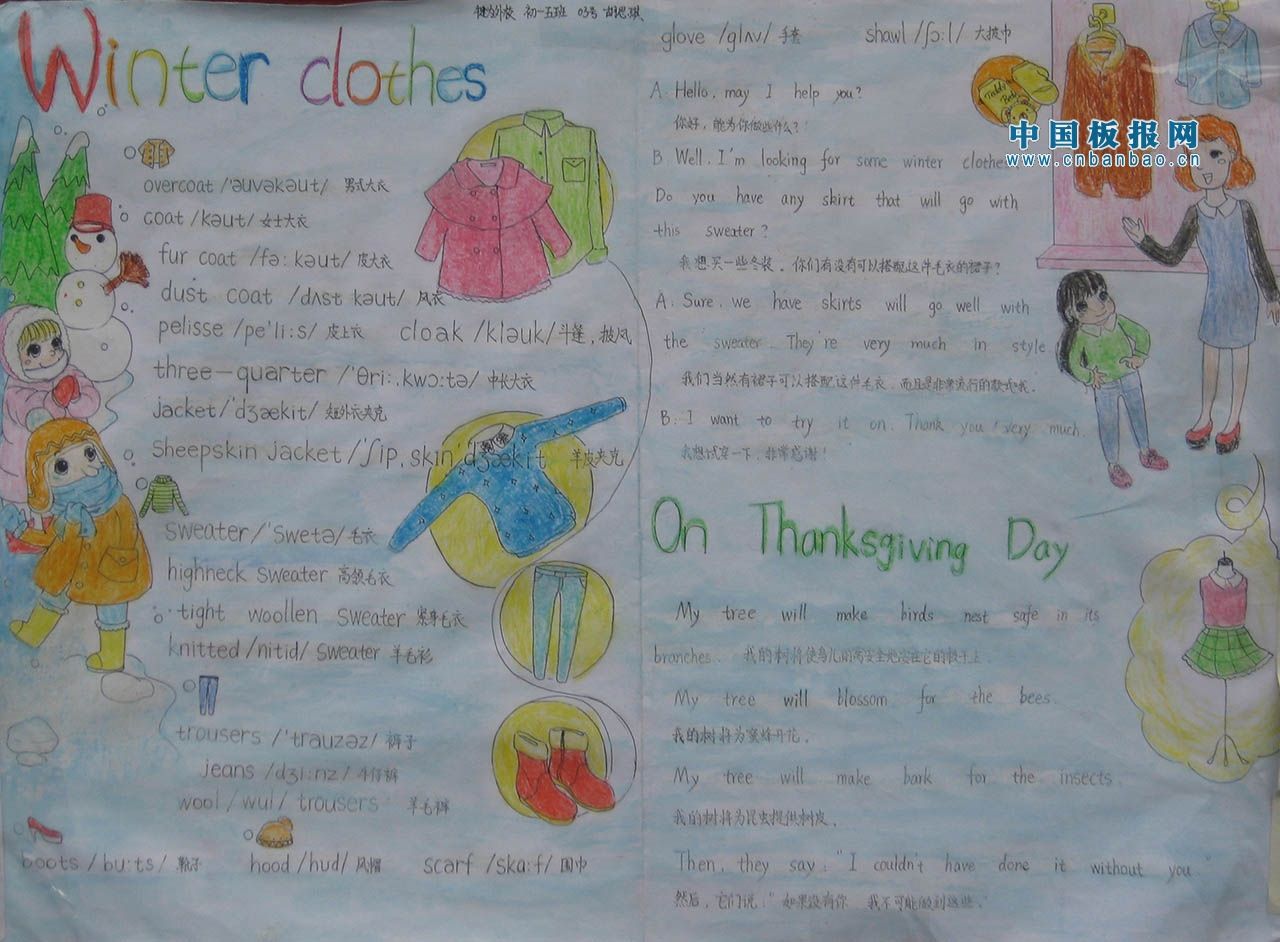 初一五班 03号 胡思琪
Winter clothes
overcoat /əuvəkəut/ 男式大衣
coat /kəut/ 女士大衣
fur coat /fə: kəut/ 皮大衣
dust coat /dʌst kəut/ 风衣
pelisse /pe'li:s/ 皮上衣 cloak /kləuk/ 斗篷，披风
three-quarter /'θri:.kwɔ:tə/ 中长大衣
jacket /'dʒækit/ 短外衣夹克
sheepskin jacket /'ʃip,skin'dʒækit 羊皮夹克
sweater /'swetə/ 毛衣
highneck sweater 高领毛衣
tight woollen sweater 紧身毛衣
knitted /nitid/ sweater 羊毛衫
trousers /'trauzəz/ 裤子
jeans /dʒi:nz/ 牛仔裤
wool /wul/ trousers 羊毛裤
boots /bu:ts/ 靴子 hood /hud/ 风帽 scarf /ska:f/ 围巾
glove /glʌv/ 手套 shawl /ʃɔ:l/ 大披巾
A: Hello, may I help you?
你好，能为你做些什么？
B. Well. I'm looking for some winter clothes
Do you have any skirt that will go with
this sweater?
我想买一些冬装，你们有没有可以搭配这件毛衣的裙子？
A: Sure, we have skirts will go well with
the sweater. They're very much in style
我们当然有裙子可以搭配这件毛衣，而且是非常流行的款式哦。
B: I want to try it on. Thank you very much.
我想试穿一下，非常感谢！
中国板报网
www.cnbanbao.cn
On Thanksgiving Day
My tree will make birds nest safe in its
branches. 我的树将使鸟儿的窝安全地安在它的枝干上
My tree will blossom for the bees.
我的树将为蜜蜂开花。
My tree will make bark for the insects.
我的树将为昆虫提供树皮。
Then, they say: "I couldn't have done it without you."
然后，它们说："如果没有你 我不可能做到这些。"